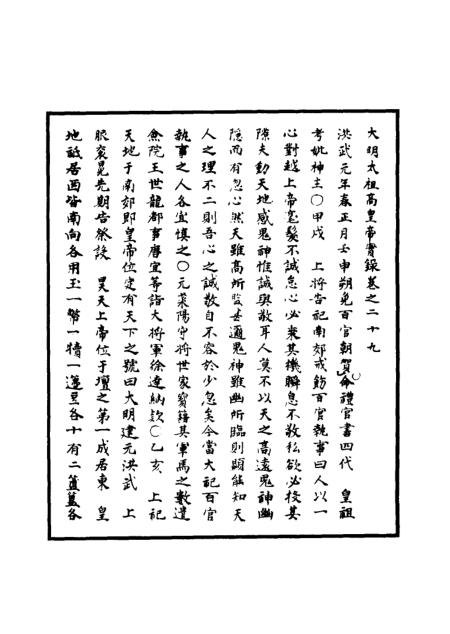 大明太祖高皇帝實錄卷之二十九
洪武元年春正月壬申朔免百官朝賀命禮官書四代　皇祖
考妣神主○甲戌　上將告祀南郊戒飭百官執事曰人以一
心對越上帝毫髮不誠怠心必乘其機瞬息不敬私欲必投其
隙夫動天地感鬼神惟誠與敬耳人莫不以天之高遠鬼神幽
隱而有忽心然天雖高所監甚邇鬼神雖幽所臨則顯能知天
人之理不二則吾心之誠敬自不容於少忽矣今當大祀百官
執事之人各宜慎之○元萊陽守將世家寶籍其軍馬之數遣
僉院王世龍郡事唐宜等詣大將軍徐達納款○乙亥　上祀
天地于南郊即皇帝位定有天下之號曰大明建元洪武　上
服袞冕先期告祭設　昊天上帝位于壇之第一成居東　皇
地祇居西皆南向各用玉一幣一犢一籩豆各十有二簠簋各